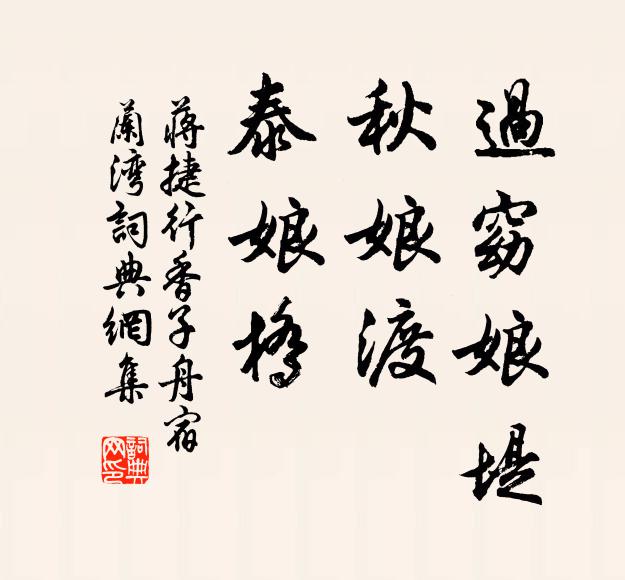 過窈娘堤
秋娘渡
泰娘橋
蔣捷行香子舟宿
蘭湾詞典網集
詞典网印